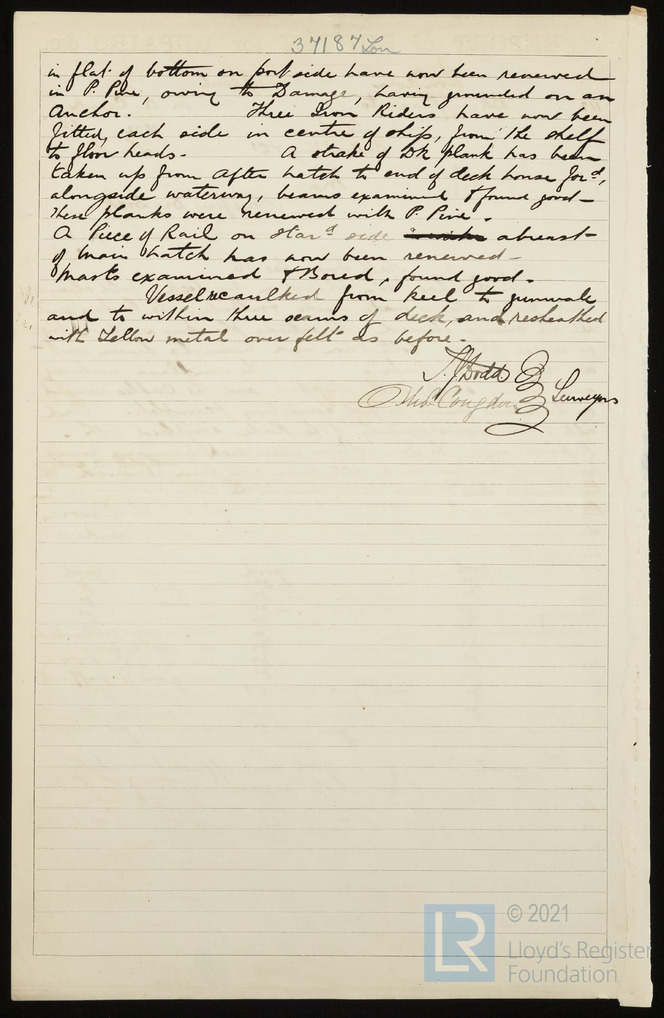 37187 Lon
in flat of bottom on port side have now been renewed
in P. Pine, owing to Damage, having grounded on an
Anchor. Three Iron Riders have now been
fitted, each side in centre of ship, from the shelf
to floor heads. A strake of Dk plank has been
taken up from After hatch to end of deck house Ford,
alongside waterway, beams examined & found good -
these planks were renewed with P. Pine.
A Piece of Rail on Stard side abreast
of Main hatch has now been renewed -
Masts examined & Bored, found good.
Vessel recaulked from keel to gunwale
and to within three seams of deck, and resheathed
with Yellow metal over felt as before.
T. J. Dodd
Thos Congdon Surveyors
© 2021
Lloyd's Register
Foundation
LR